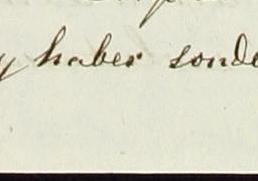 y haber sonde